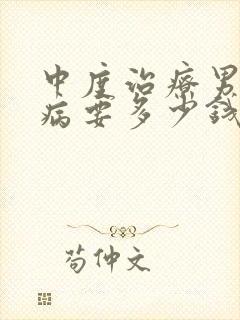 中度治療男
病要多少錢
苟仲文